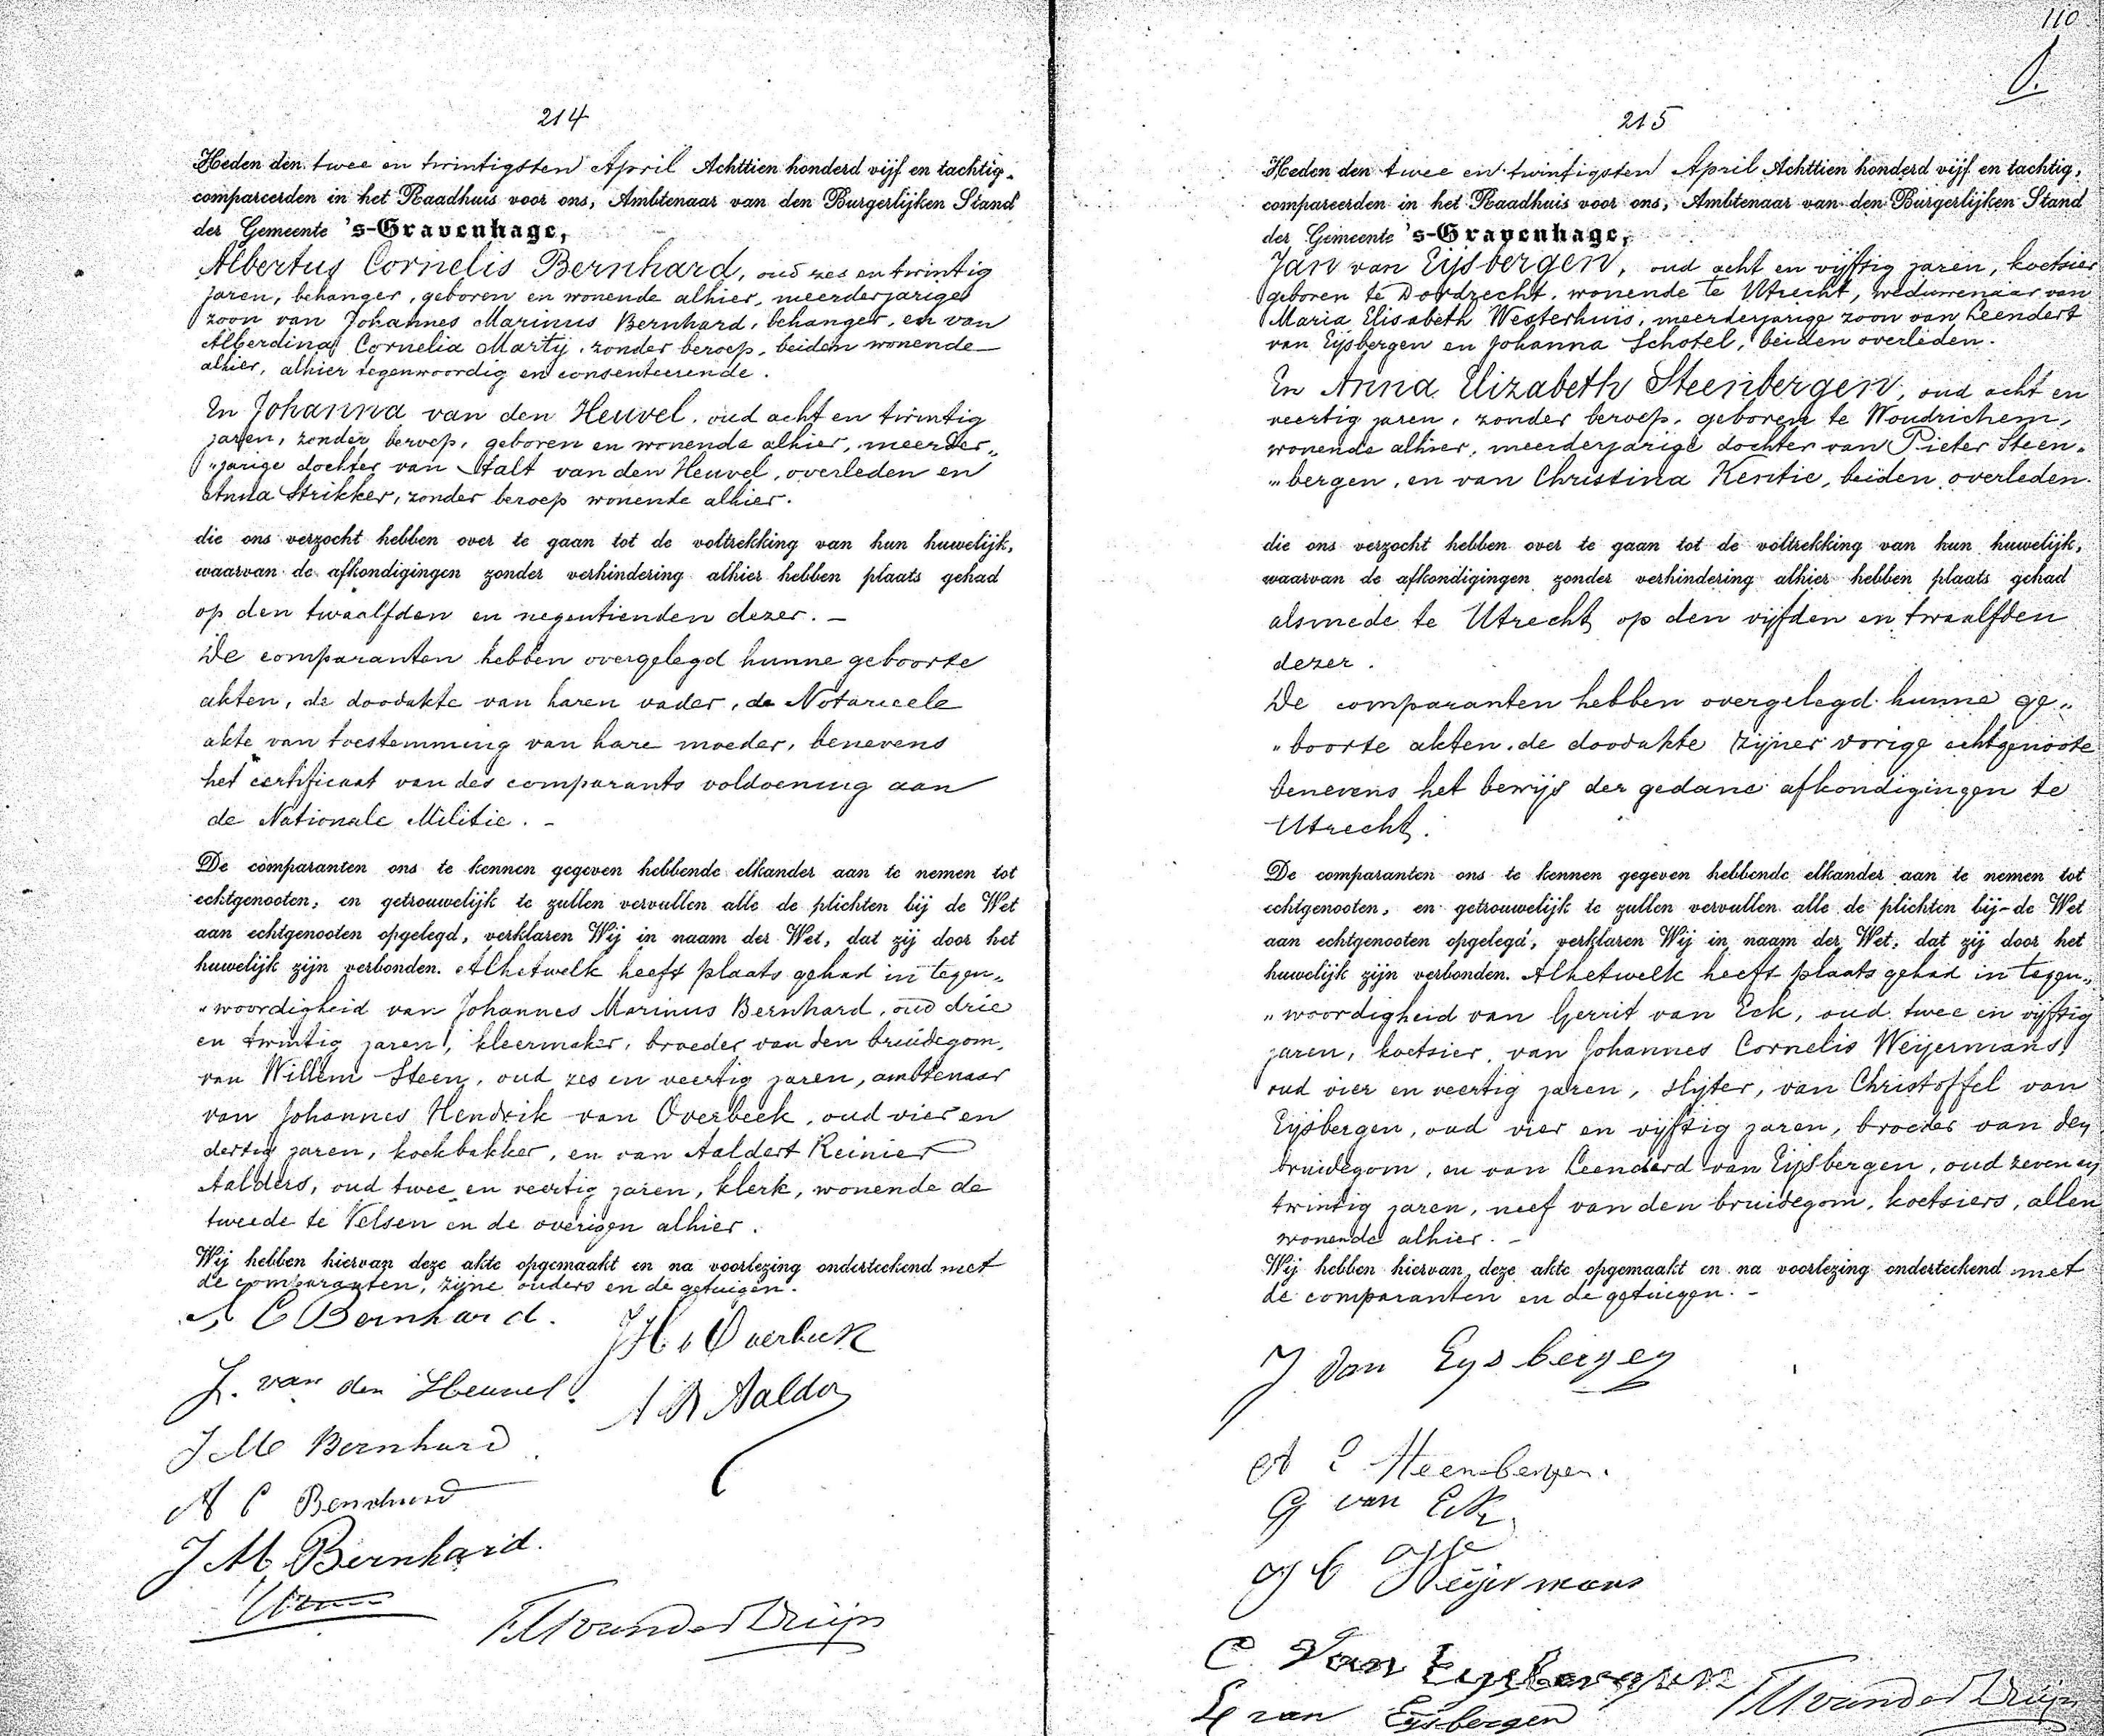 214
Heden den twee en twintigsten April Achttien honderd vijf en tachtig,
compareerden in het Raadhuis voor ons, Ambtenaar van den Burgerlijken Stand
der Gemeente 's-Gravenhage,
Albertus Cornelis Bernhard, oud zes en twintig
jaren, behanger, geboren en wonende alhier, meerderjarige
zoon van Johannes Marinus Bernhard, behanger, en van
Alberdina Cornelia Martij, zonder beroep, beiden wonende
alhier, alhier tegenwoordig en consenteerende.
En Johanna van den Heuvel, oud acht en twintig
jaren, zonder beroep, geboren en wonende alhier, meerder„
„jarige dochter van Aalt van den Heuvel, overleden en
Anna Strikker, zonder beroep wonende alhier.
die ons verzocht hebben over te gaan tot de voltrekking van hun huwelijk,
waarvan de afkondigingen zonder verhindering alhier hebben plaats gehad
op den twaalfden en negentienden dezer. —
De comparanten hebben overgelegd hunne geboorte
akten, de doodakte van haren vader, de Notarieele
akte van toestemming van hare moeder, benevens
het certificaat van des comparants voldoening aan
de Nationale Militie. -
De comparanten ons te kennen gegeven hebbende elkander aan te nemen tot
echtgenooten, en getrouwelijk te zullen vervullen alle de plichten bij de Wet
aan echtgenooten opgelegd, verklaren Wij in naam der Wet, dat zij door het
huwelijk zijn verbonden. Alhetwelk heeft plaats gehad in tegen„
„woordigheid van Johannes Marinus Bernhard, oud drie
en twintig jaren, kleermaker, broeder van den bruidegom,
van Willem Steen, oud zes en veertig jaren, ambtenaar
van Johannes Hendrik van Overbeek, oud vier en
dertig jaren, koekbakker, en van Aaldert Reinier
Aalders, oud twee en veertig jaren, klerk, wonende de
tweede te Velsen en de overigen alhier.
Wij hebben hiervan deze akte opgemaakt en na voorlezing onderteekend met
de comparanten, zijne ouders en de getuigen.
A C Bernhard.
J H v Overbeek
J. van den Heuvel.
A R Aalders
J M Bernhard
A C Bernhard
J M Bernhard.
110
215
Heden den twee en twintigsten April Achttien honderd vijf en tachtig,
compareerden in het Raadhuis voor ons, Ambtenaar van den Burgerlijken Stand
der Gemeente 's-Gravenhage,
Jan van Eijsbergen, oud acht en vijftig jaren, koetsier
geboren te Dordrecht, wonende te Utrecht, weduwenaar van
Maria Elisabeth Westerhuis, meerderjarige zoon van Leendert
van Eijsbergen en Johanna Schotel, beiden overleden.
En Anna Elizabeth Steenbergen, oud acht en
veertig jaren, zonder beroep, geboren te Woudrichem,
wonende alhier, meerderjarige dochter van Pieter Steen„
„bergen, en van Christina Kentie, beiden overleden.
die ons verzocht hebben over te gaan tot de voltrekking van hun huwelijk,
waarvan de afkondigingen zonder verhindering alhier hebben plaats gehad
alsmede te Utrecht op den vijfden en twaalfden
dezer.
De comparanten hebben overgelegd hunne ge„
„boorte akten, de doodakte zijner vorige echtgenoote
benevens het bewijs der gedane afkondigingen te
Utrecht.
De comparanten ons te kennen gegeven hebbende elkander aan te nemen tot
echtgenooten, en getrouwelijk te zullen vervullen alle de plichten bij de Wet
aan echtgenooten opgelegd, verklaren Wij in naam der Wet, dat zij door het
huwelijk zijn verbonden. Alhetwelk heeft plaats gehad in tegen„
„woordigheid van Gerrit van Eck, oud twee en vijftig
jaren, koetsier, van Johannes Cornelis Weijermans,
oud vier en veertig jaren, slijter, van Christoffel van
Eijsbergen, oud vier en vijftig jaren, broeder van den
bruidegom, en van Leenderd van Eijsbergen, oud zeven en
twintig jaren, neef van den bruidegom, koetsiers, allen
wonende alhier. -
Wij hebben hiervan deze akte opgemaakt en na voorlezing onderteekend met
de comparanten en de getuigen. -
J van Eysbergen
A E Steenbergen.
G van Eck
J C Weijermans
C van Eysbergen
L van Eysbergen